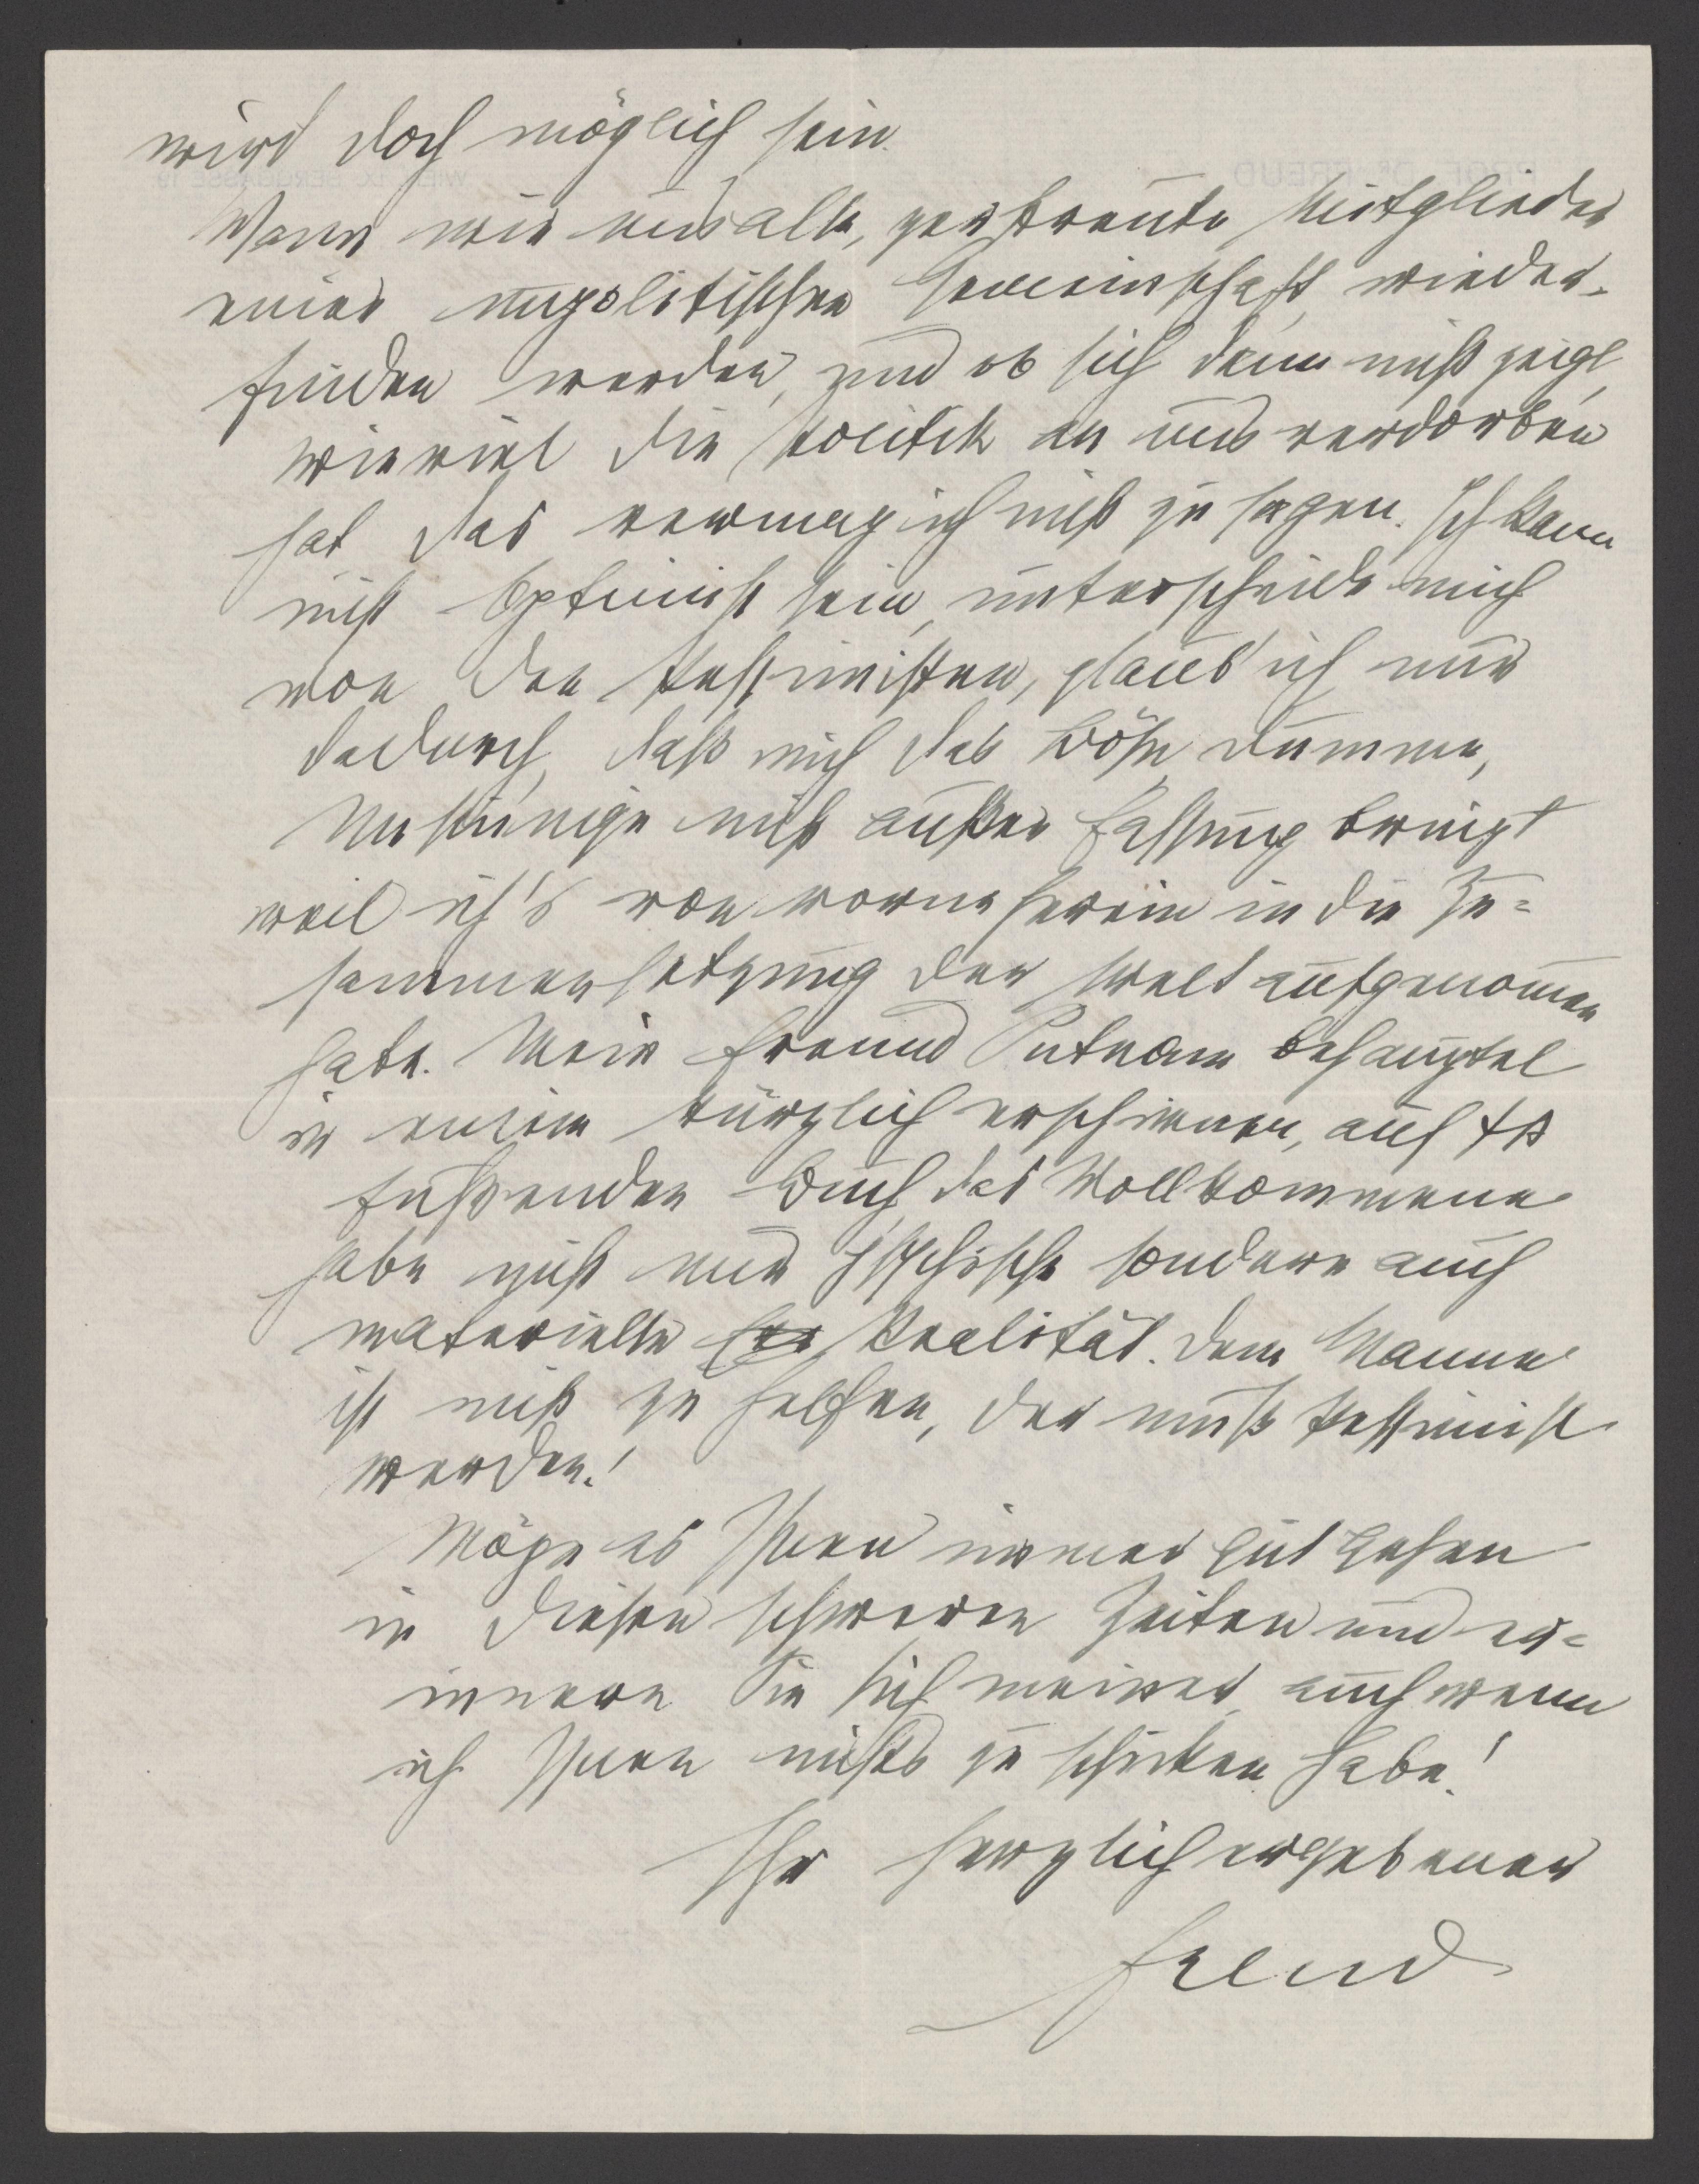 wird doch möglich sein.
Wann wir uns alle, zerstreute Mitglieder
einer unpolitischen Gemeinschaft, wieder-
finden werden, und ob sich dann nicht zeigt,
wieviel die Politik an uns verdorben
hat, das vermag ich nicht zu sagen. Ich kann
nicht Optimist sein, unterscheide mich
von den Pessimisten, glaub' ich, nur
dadurch, daß mich das Böse, Dumme,
Unsinnige nicht außer Fassung bringt
weil ich's von vorneherein in die Zu=
sammensetzung der Welt aufgenomen
habe. Mein Freund Putnam behauptet
in einem kürzlich erschienen, auf ΨA
fußenden Buch, das Vollkommene
habe nicht nur psychische sondern auch
materielle Realität. Dem Manne
ist nicht zu helfen, der muß Pessimist
werden!
Möge es Ihnen immer gut gehen
in diesen schweren Zeiten und er=
innern Sie sich meiner, auch wenn
ich Ihnen nichts zu schicken habe!
Ihr herzlich ergebener
Freud
PROF. Dr. FREUD
WIEN, IX. BERGGASSE 19